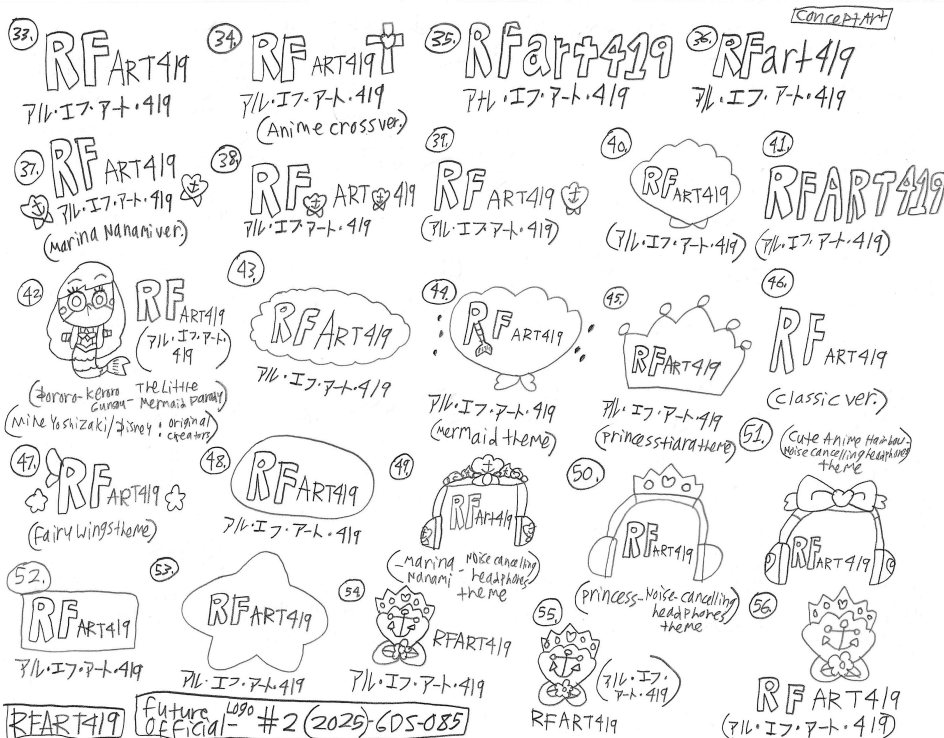 Concept Art
33.
RF ART419
アル・エフ・アート・419
34.
RF ART419
アル・エフ・アート・419
(Anime cross ver.)
35.
RFart419
アル・エフ・アート・419
36.
RFart419
アル・エフ・アート・419
37.
RF ART419
アル・エフ・アート・419
(Marina Nanami ver.)
38.
RF ART 419
アル・エフ・アート・419
39.
RF ART419
(アル・エフ・アート・419)
40.
RF ART419
(アル・エフ・アート・419)
41.
RFART419
(アル・エフ・アート・419)
42.
RF ART419
(アル・エフ・アート・
419)
(Dororo-Keroro Gunsou- The Little Mermaid Parody)
(Mine Yoshizaki/Disney: original creators)
43.
RFArt419
アル・エフ・アート・419
44.
RF ART419
アル・エフ・アート・419
(Mermaid theme)
45.
RFART419
アル・エフ・アート・419
(princess tiara theme)
46.
RF ART419
アル・エフ・アート・419
(classic ver.)
47.
RF ART419
(Fairy wings theme)
48.
RF ART419
アル・エフ・アート・419
49.
RF Art419
(Marina Nanami - Noise cancelling headphones theme
50.
RF ART419
(princess-Noise-cancelling
headphones
theme
51.
(Cute Anime Hairbow-
Noise cancelling headphones
theme
RF ART419
52.
RF ART419
アル・エフ・アート・419
53.
RF ART419
アル・エフ・アート・419
54.
RFART419
アル・エフ・アート・419
55.
(アル・エフ・
アート・419)
RFART419
56.
RF ART419
(アル・エフ・アート・419)
RFART419
Future Official- Logo #2 (2025)-GDS-085